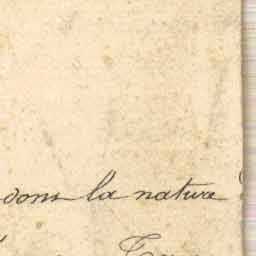 dans la nature